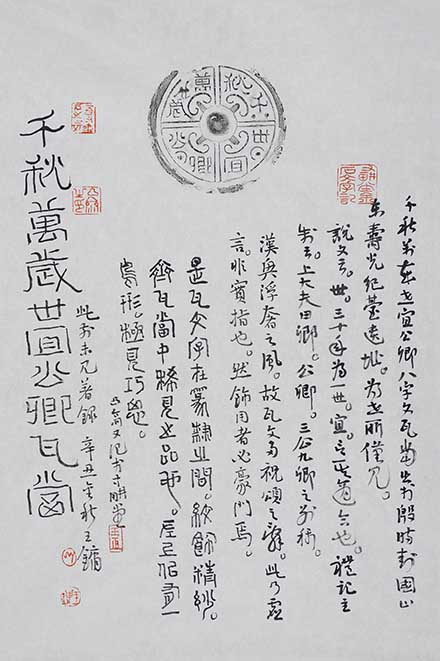 千秋萬歲
世宜公卿
千秋萬歲世宜公卿八字文瓦當出於殷時封國山
東壽光紀臺遺址。為世所僅見。
說文云。世。三十年為一世。宜。言其適合也。禮記王
制云。上大夫曰卿。公卿。三公九卿之別稱。
漢興浮奢之風。故瓦文多祝頌之辭。此乃虛
言。非實指也。然飾用者必豪門焉。
是瓦文字在篆隸之間。紋飾精紗。
齊瓦當中稀見之品也。
鳥形。極見巧思。
千秋萬歲世宜公卿瓦當
此前未見著錄 辛丑金秋王鏞